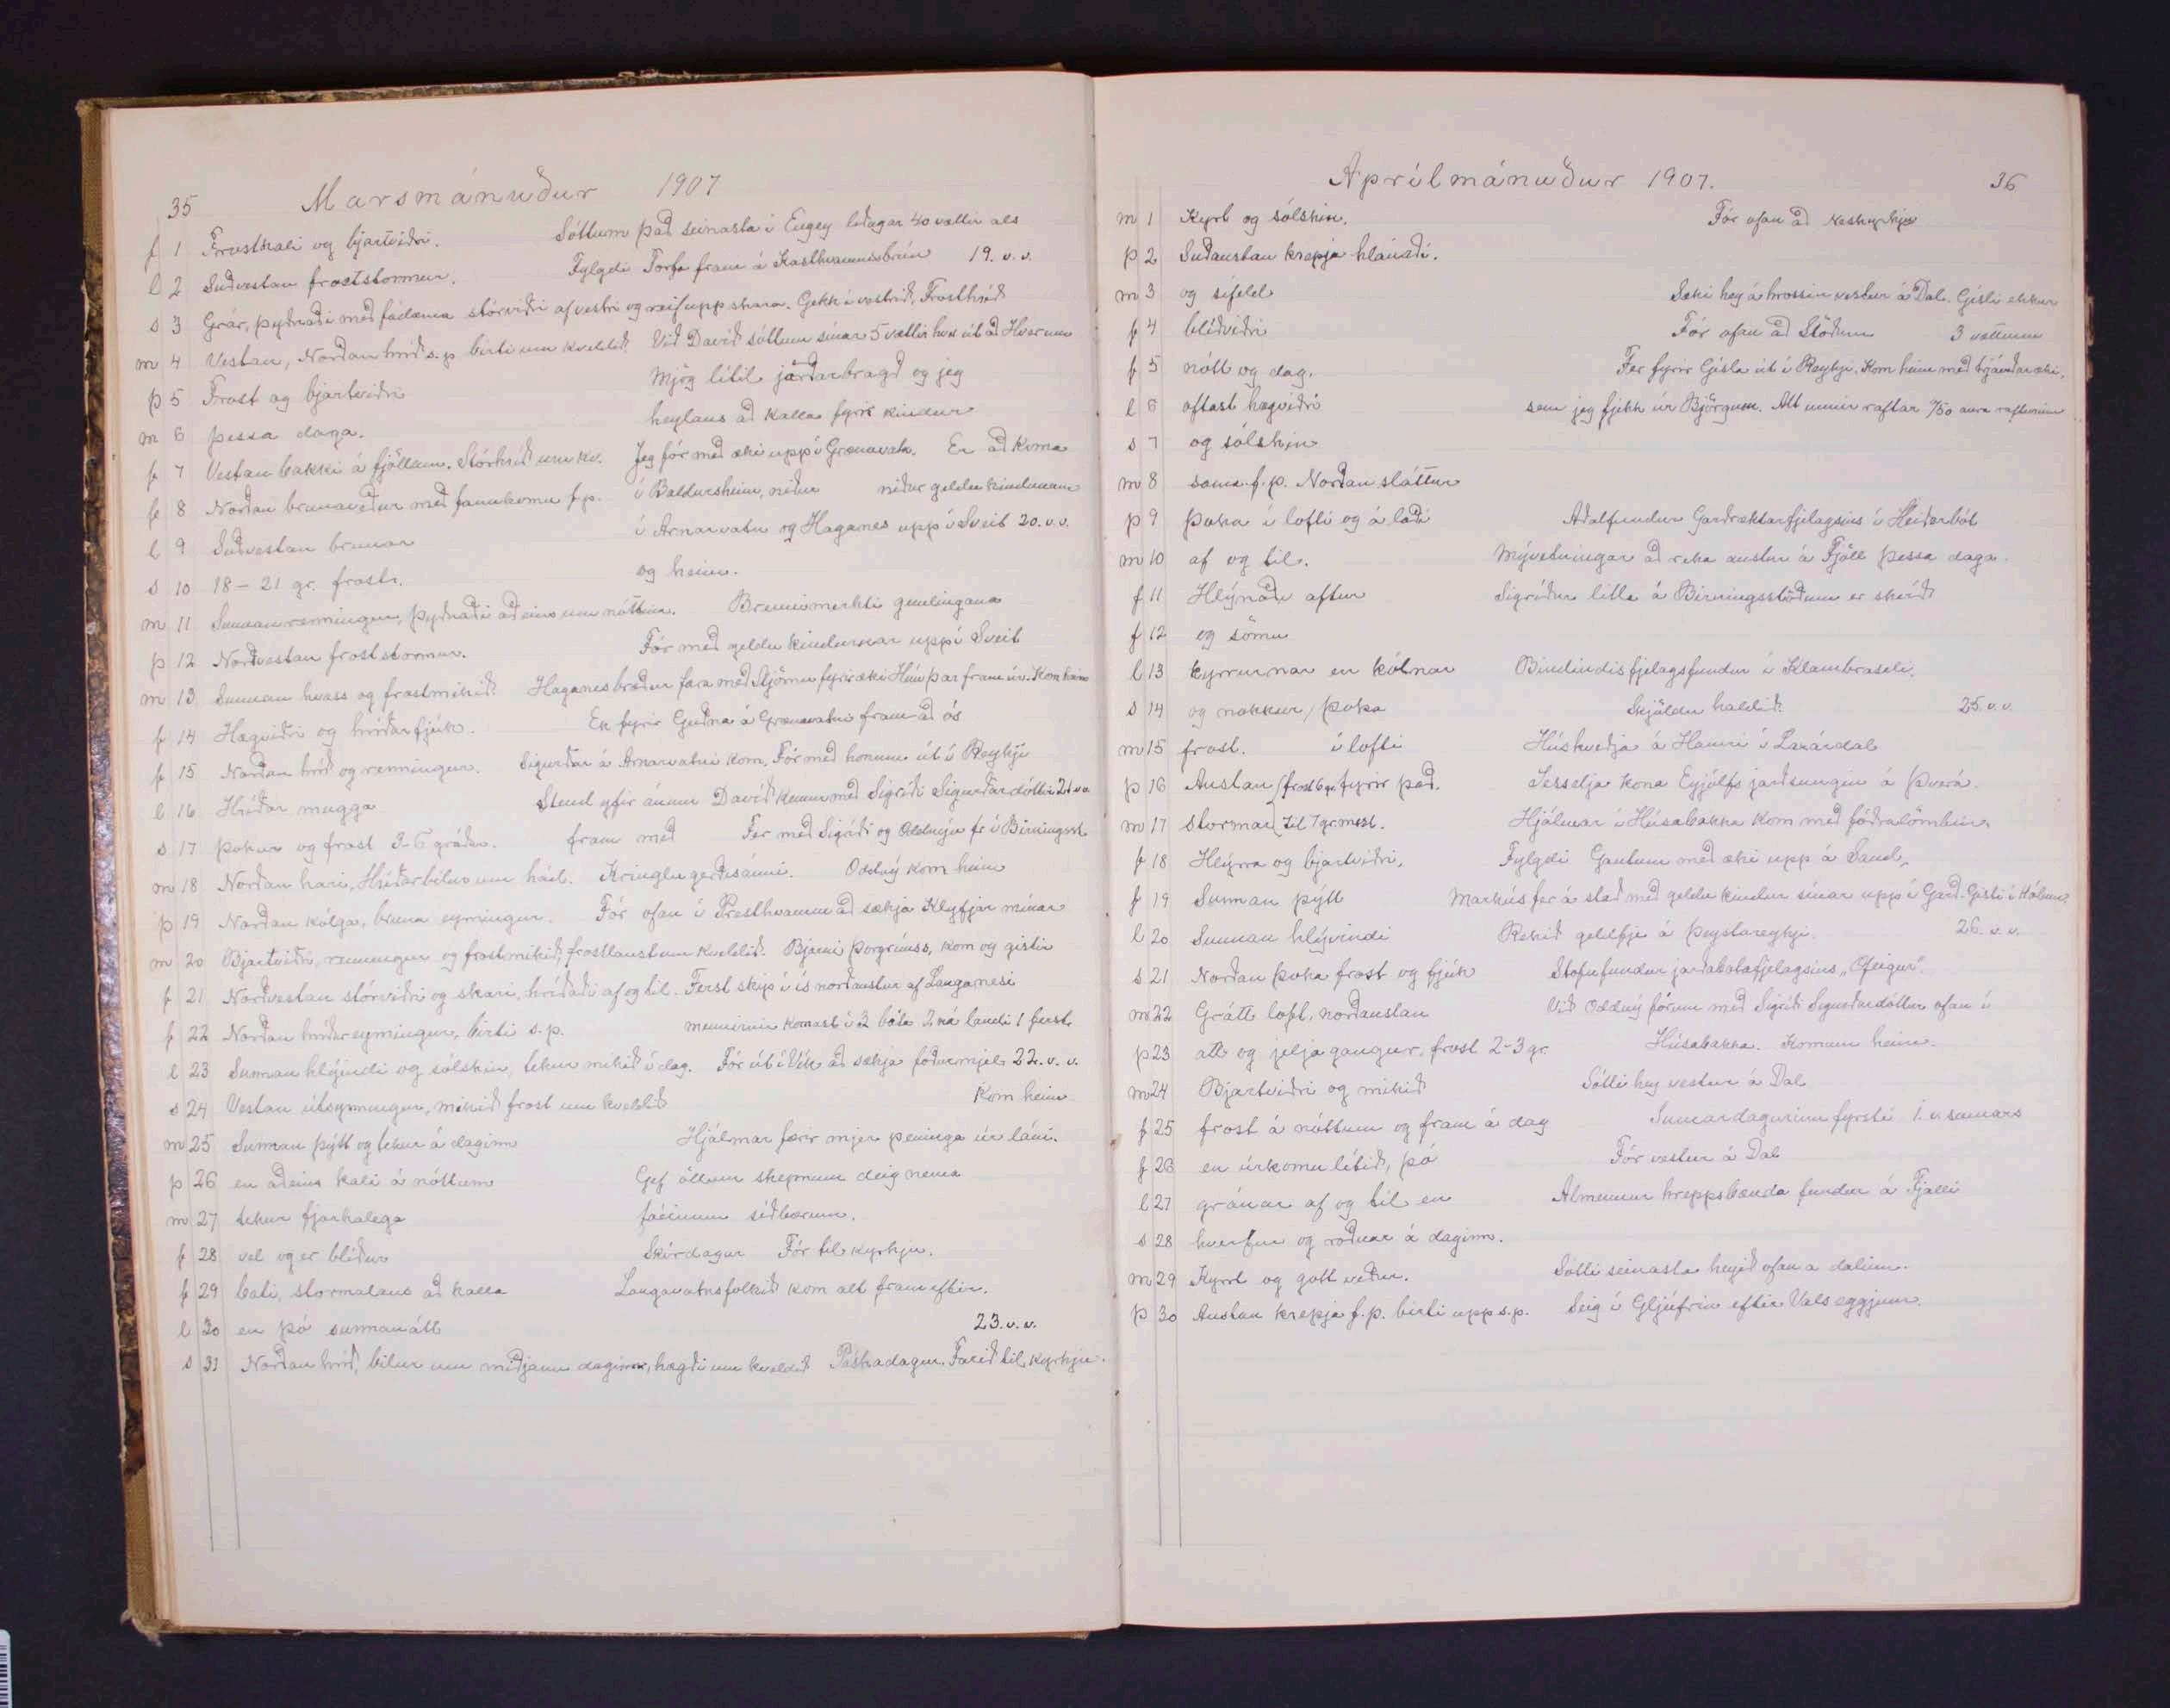 35 Marsmánuður 1907
f 1 Frostkali og bjartviðri. Sóttum það seinasta í Engey löðgar 40 vættir als
l 2 Suðvestan froststormur. Fylgdi Torfa fram á Kasthvammsbrún 19. v. v.
s 3 Grár, þyðnaði með fádæma stórviðri af vestri og reif upp skara. Gekk í vestrið, Frosthríð
m 4 Vestan, Norðan hríð s. p. birti um kveldið. Við Davíð sóttum sínar 5 vættir hvor út að Hverum
þ 5 Frost og bjartviðri Mjög lítil jarðarbragð og jeg
m 6 þessa daga. heylaus að kalla fyrir kindur
f 7 Vestan bakki á fjöllum. Stórhríð um kv. Jeg fór með æki upp í Grænavatn. Er að koma
f 8 Norðan brunaveður með fannkomu f. p. í Baldursheim, niður niður geldu kindunum
l 9 Suðvestan brunar í Arnarvatn og Haganes upp í Sveit 20. v. v.
s 10 18 - 21 gr. frost. og heim.
m 11 Sunnan renningur, þyðnaði aðeins um nóttina. Brennimerkti gemlingana
þ 12 Norðvestan froststormur. Fór með geldu kindurnar upp í Sveit
m 13 Sunnan hvass og frostmikið. Haganesbræður fara með Stjörnu fyrir æki Hún þar fram úr. Kom heim
f 14 Hægviðri og hríðarfjúk. Ek fyrir Guðna á Grænavatni fram að ós
f 15 Norðan hríð og renningur. Sigurður á Arnarvatni kom. Fór með honum út í Reykji
l 16 Hríðar mugga Stend yfir ánum Davíð kemur með Sigríði Sigurðardóttir 21 v.v.
s 17 þokur og frost 3-6 gráður. fram með Fer með Sigríði og Oddnýu fr í Birningsst.
m 18 Norðan hari, Hríðarbilur um hád. Kringlugerðisánni. Oddný kom heim
þ 19 Norðan kólga, bruna eymingur. Fór ofan í Presthvamm að sækja Klyfjar mínar
m 20 Bjartviðri, renningur og frostmikið, frostlaust um kveldið. Bjarni Þorgrímss. kom og gistir
f 21 Norðvestan stórviðri og skari, hríðaði af og til. Ferst skip í ís norðaustur af Langanesi
f 22 Norðan hríðareymingur, birti s. p. mennirnir komast í 3 báta 2 ná landi 1 ferst.
l 23 Sunnan hlýindi og sólskin, tekur mikið í dag. Fór út í Vík að sækja fóðurmjöl 22. v. v.
s 24 Vestan útsynningur, mikið frost um kveldið Kom heim
m 25 Sunnan þýtt og tekur á daginn Hjálmar færir mjer peninga úr láni.
þ 26 en aðeins kali á nóttum Gef öllum skepnum deig nema
m 27 tekur fjarskalega fáeinum síðbærum.
f 28 vel og er blíður Skírdagur Fór til kyrkju.
f 29 bati, stormalaus að kalla Langavatnsfólkið kom alt frameftir.
l 30 en þó sunnanátt 23. v. v.
s 31 Norðan hríð, bilur um miðjann daginn, hægði um kveldið Páskadagur. Farið til kyrkju.
Aprílmánuður 1907. 36
m 1 Kyrt og sólskin. Fór ofan að Neskyrkju
þ 2 Suðaustan krepja hlánaði.
m 3 og sífeld Sæki hey á hrossin vestur á Dal. Gísli ekkur
f 4 blíðviðri Fór ofan að Stöðum 3 vættum
f 5 nótt og dag. Fer fyrir Gísla út í Reykji. Kom heim með trjáviðaræki,
l 6 oftast hægviðri sem jeg fjekk úr Björgum. Alt unnir raftar á /50 aura rafturinn
s 7 og sólskin
m 8 sama f. p. Norðan sláttur
þ 9 þoka í lofti og á láði Aðalfundur Garðræktarfjelagsins í Heiðarbót
m 10 af og til. Mývetningar að reka austur á Fjöll þessa daga.
f 11 Hlýnaði aftur Sigríður litla á Birningsstöðum er skírð
f 12 og sömu
l 13 kyrrurnar en kólnar Bindindisfjelagsfundur í Klambraseli.
s 14 og nokkur þoka Skjöldu haldið. 25. v. v.
m 15 frost. í lofti Húskveðja á Hamri í Laxárdal
þ 16 Austan frost 6 gr. fyrir það. Sesselja kona Eyjólfs jarðsungin á Þverá.
m 17 stormar til 7 gr. mest. Hjálmar í Húsabakka kom með fóðralömbin
f 18 Hlýrra og bjartviðri, Fylgdi Gautum með æki upp á Sand,
f 19 Sunnan þýtt Markús fer á stað með geldu kindur sínar upp í Garð. Gisti í Hólum.
l 20 Sunnan hlývindi Rekið geldfje á Þeystareyki. 26. v. v.
s 21 Norðan þoka frost og fjúk Stofnfundur jarðabótafjelagsins „Ófeigur".
m 22 Grátt loft, norðaustan Við Oddný fórum með Sigríði Sigurðardóttur ofan í
þ 23 átt og jeljagangur, frost 2-3 gr. Húsabakka. Komum heim.
m 24 Bjartviðri og mikið Sótti hey vestur á Dal
f 25 frost á nóttum og fram á dag Sumardagurinn fyrsti 1. v. sumars
f 26 en úrkomu lítið, þó Fór vestur á Dal
l 27 gránar af og til en Almennur hreppsbænda fundur á Fjalli
s 28 hverfur og roðnar á daginn.
m 29 Kyrrt og gott veður. Sótti seinasta heyið ofan a dalinn.
þ 30 Austan krepja f. p. birti upp s. p. Seig í Gljúfrin eftir Vals eggjum.